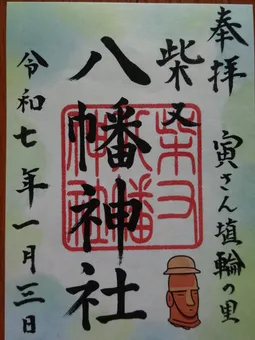 奉拝
寅さん埴輪の里
柴又
八幡神社
令和七年一月三日
柴又八幡神社